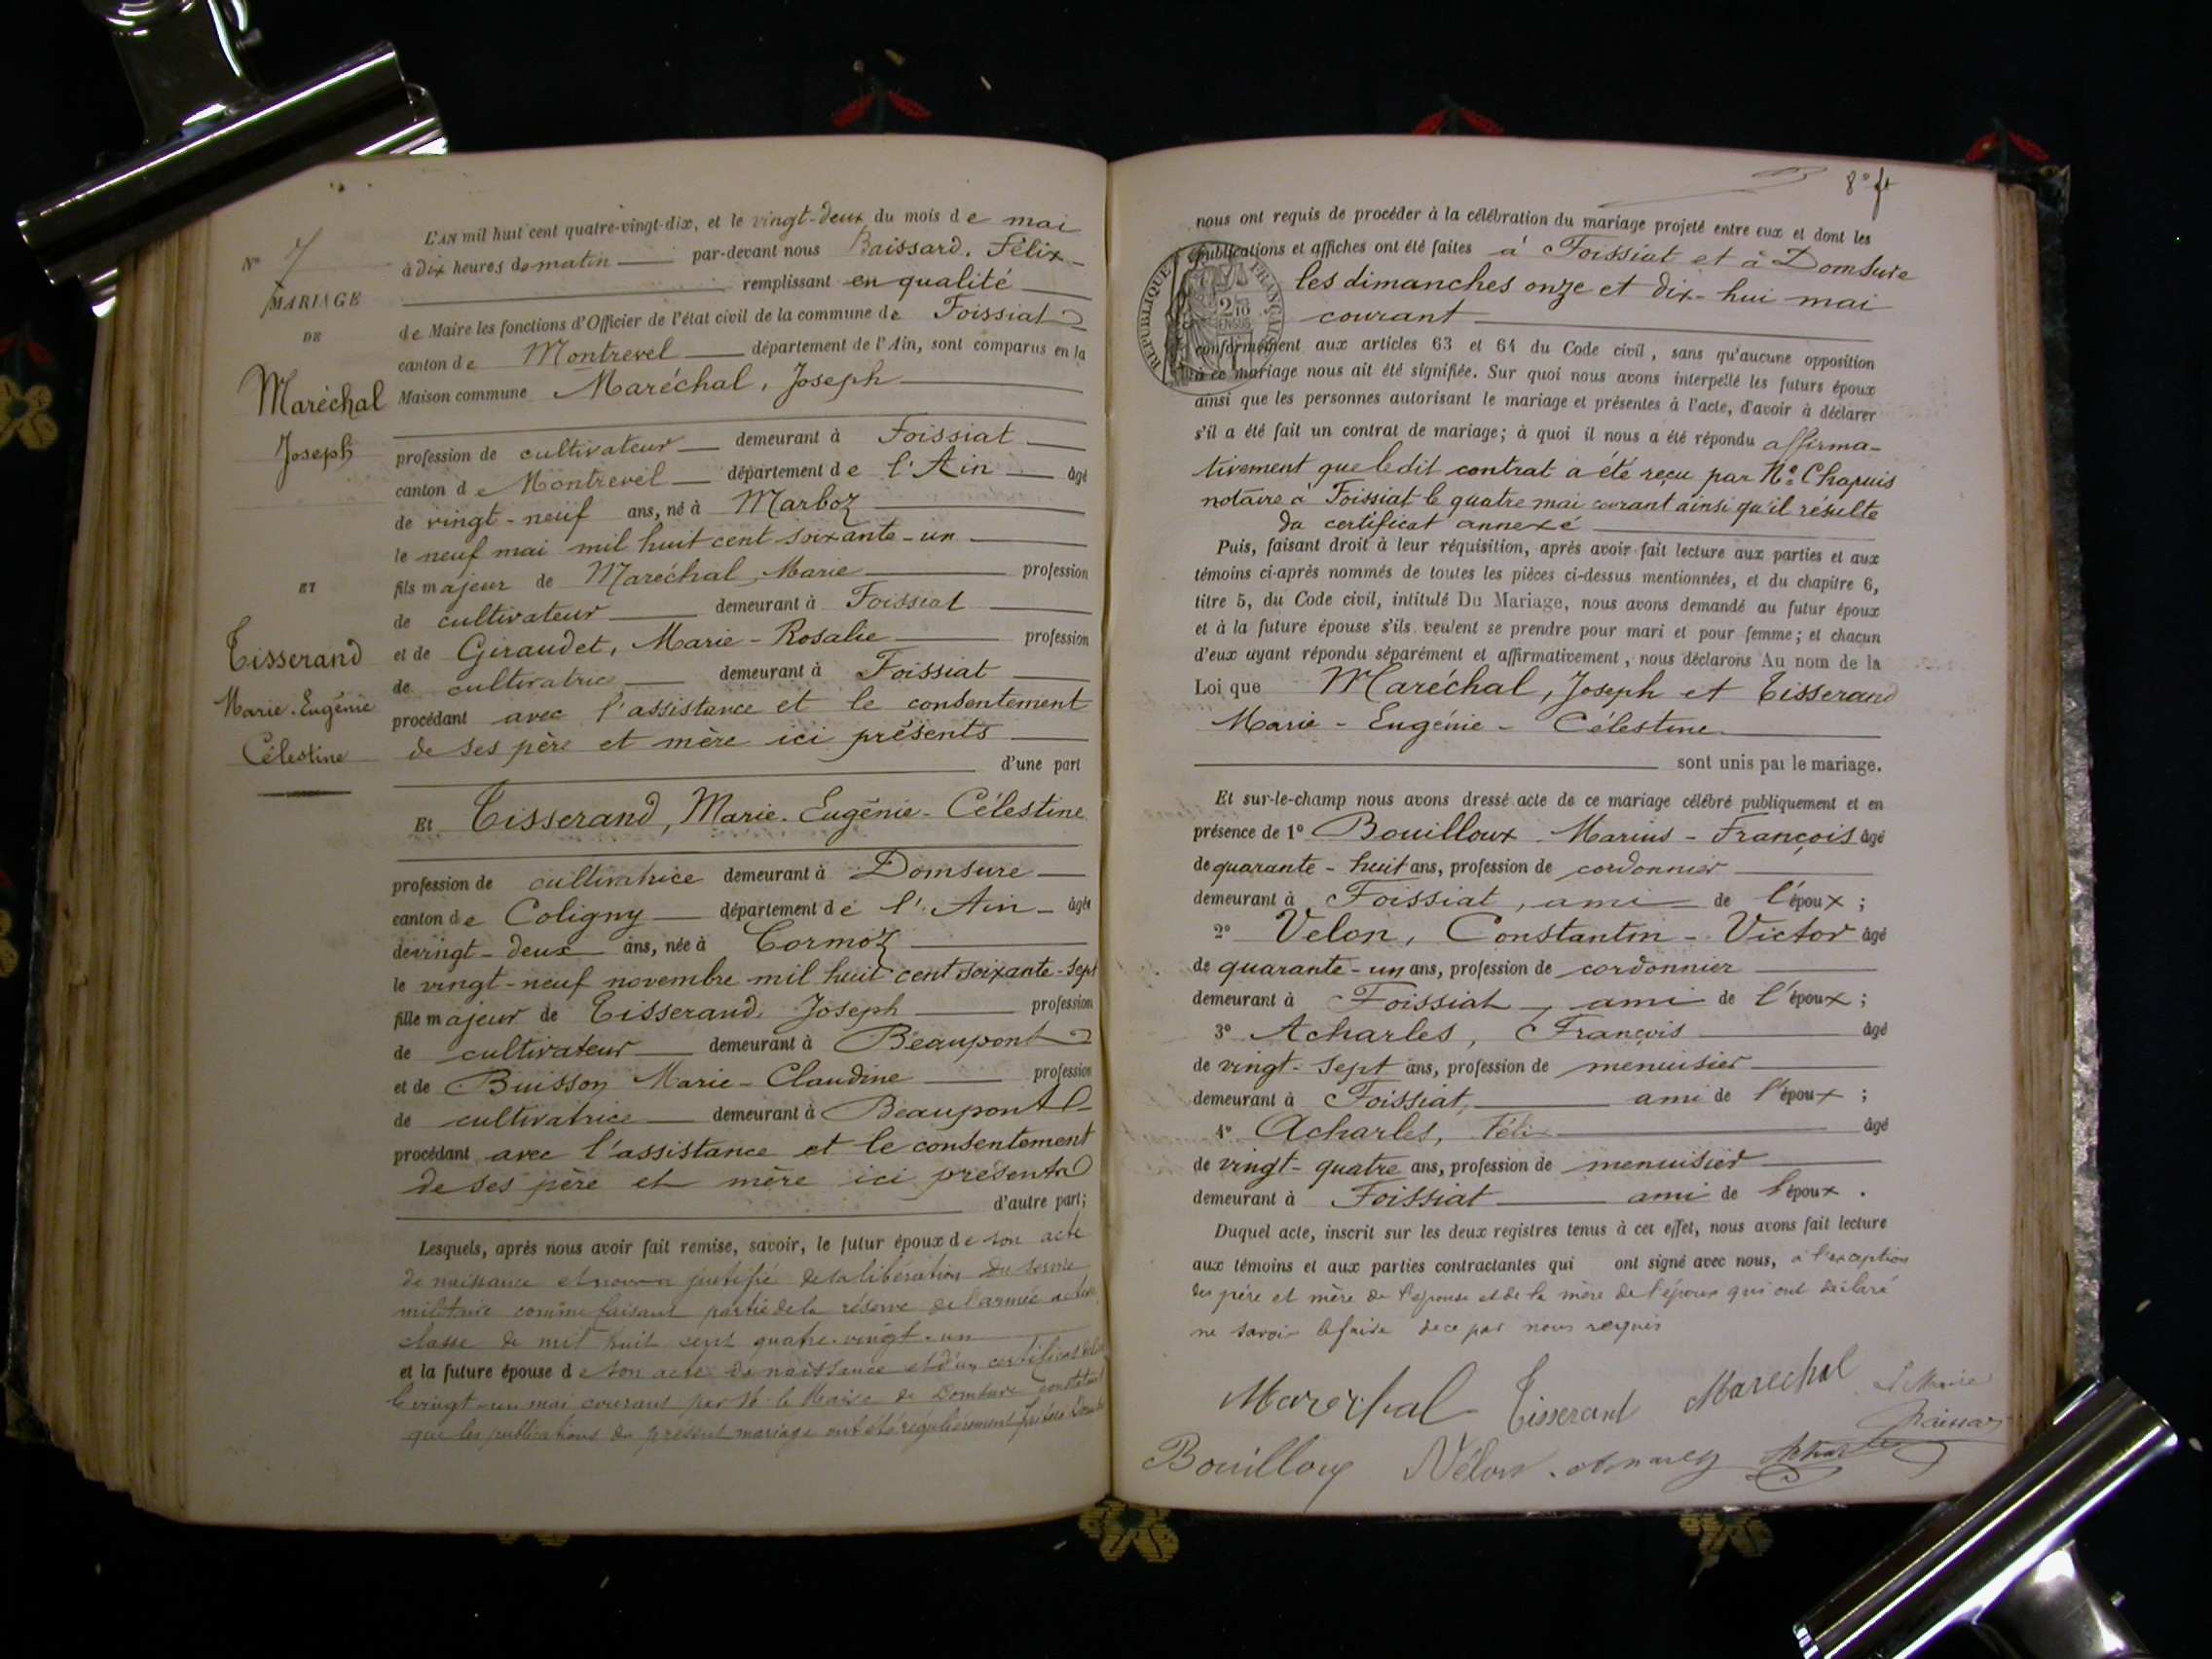 N° 7
MARIAGE
DE
Maréchal
Joseph
ET
Tisserand
Marie-Eugénie
Célestine
L'AN mil huit cent quatre-vingt-dix, et le vingt-deux du mois de mai
à dix heures du matin par-devant nous Baissard, Félix
remplissant en qualité
de Maire les fonctions d'Officier de l'état civil de la commune de Foissiat
canton de Montrevel département de l'Ain, sont comparus en la
Maison commune Maréchal, Joseph
profession de cultivateur demeurant à Foissiat
canton de Montrevel département de l'Ain âgé
de vingt-neuf ans, né à Marboz
le neuf mai mil huit cent soixante-un
fils majeur de Maréchal, Marie profession
de cultivateur demeurant à Foissiat
et de Giraudet, Marie-Rosalie profession
de cultivatrice demeurant à Foissiat
procédant avec l'assistance et le consentement
de ses père et mère ici présents
d'une part
Et Tisserand, Marie-Eugénie-Célestine
profession de cultivatrice demeurant à Domsure
canton de Coligny département de l'Ain âgée
de vingt-deux ans, née à Cormoz
le vingt-neuf novembre mil huit cent soixante-sept
fille majeur de Tisserand, Joseph profession
de cultivateur demeurant à Beaupont
et de Buisson Marie-Claudine profession
de cultivatrice demeurant à Beaupont
procédant avec l'assistance et le consentement
de ses père et mère ici présents
d'autre part;
Lesquels, après nous avoir fait remise, savoir, le futur époux de son acte
de naissance et nous a justifié de sa libération du service
militaire comme faisant partie de la réserve de l'armée active
classe de mil huit cent quatre-vingt-un
et la future épouse de son acte de naissance et d'un certificat
le vingt-un mai courant par M. le Maire de Domsure constatant
que les publications du présent mariage ont été régulièrement faites
8e ft
nous ont requis de procéder à la célébration du mariage projeté entre eux et dont les
publications et affiches ont été faites à Foissiat et à Domsure
les dimanches onze et dix-hui mai
courant
RÉPUBLIQUE FRANÇAISE
2/10
EN SUS
conformément aux articles 63 et 64 du Code civil, sans qu'aucune opposition
à ce mariage nous ait été signifiée. Sur quoi nous avons interpellé les futurs époux
ainsi que les personnes autorisant le mariage et présentes à l'acte, d'avoir à déclarer
s'il a été fait un contrat de mariage; à quoi il nous a été répondu affirma-
tivement que ledit contrat a été reçu par Me Chapuis
notaire à Foissiat le quatre mai courant ainsi qu'il résulte
du certificat annexé
Puis, faisant droit à leur réquisition, après avoir fait lecture aux parties et aux
témoins ci-après nommés de toutes les pièces ci-dessus mentionnées, et du chapitre 6,
titre 5, du Code civil, intitulé Du Mariage, nous avons demandé au futur époux
et à la future épouse s'ils veulent se prendre pour mari et pour femme; et chacun
d'eux ayant répondu séparément et affirmativement, nous déclarons Au nom de la
Loi que Maréchal, Joseph et Tisserand
Marie-Eugénie-Célestine
sont unis par le mariage.
Et sur-le-champ nous avons dressé acte de ce mariage célébré publiquement et en
présence de 1° Bouilloux Marius-François âgé
de quarante-huit ans, profession de cordonnier
demeurant à Foissiat, ami de l'époux;
2° Velon, Constantin-Victor âgé
de quarante-un ans, profession de cordonnier
demeurant à Foissiat, ami de l'époux;
3° Acharles, François âgé
de vingt-sept ans, profession de menuisier
demeurant à Foissiat, ami de l'époux;
4° Acharles, Féli âgé
de vingt-quatre ans, profession de menuisier
demeurant à Foissiat ami de l'époux.
Duquel acte, inscrit sur les deux registres tenus à cet effet, nous avons fait lecture
aux témoins et aux parties contractantes qui ont signé avec nous, à l'exception
des père et mère de l'épouse et de la mère de l'époux qui ont déclaré
ne savoir le faire de ce par nous requis
Maréchal Tisserand Marechal Le Maire
Baissard
Bouilloux Vélon